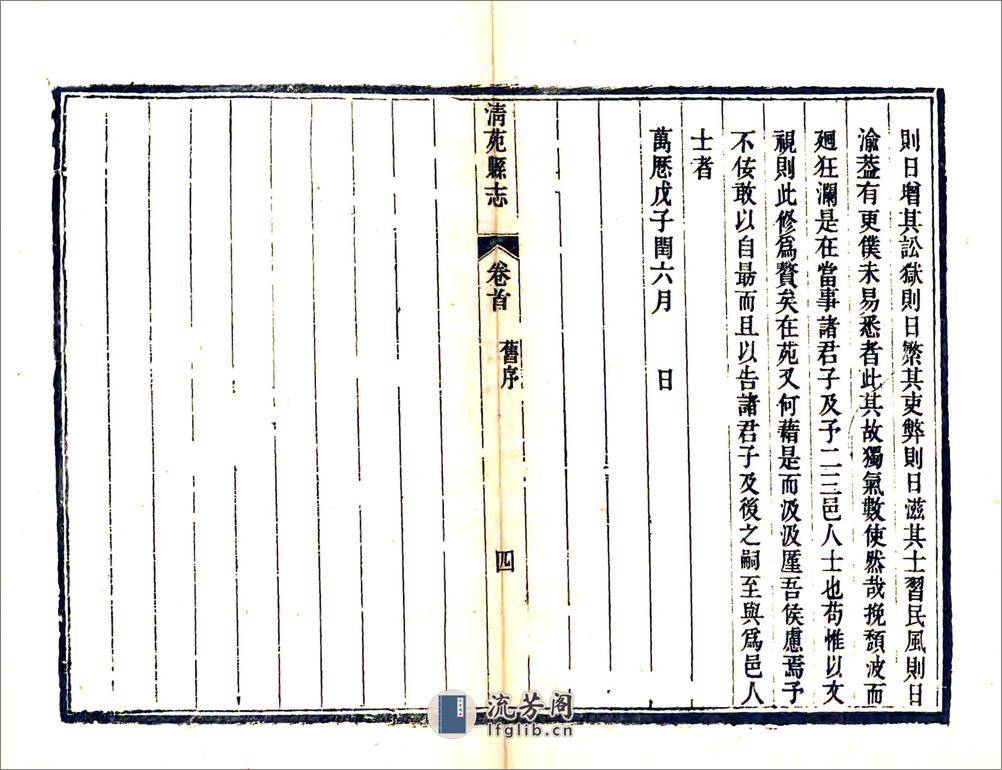 則日增其訟獄則日繁其吏弊則日滋其士習民風則日
渝葢有更僕未易悉者此其故獨氣數使然哉挽頽波而
廻狂瀾是在當事諸君子及予二三邑人士也苟惟以文
視則此修爲贅矣在苑又何藉是而汲汲廑吾侯慮焉予
不佞敢以自勗而且以告諸君子及後之嗣至與爲邑人
士者
萬歷戊子閏六月 日
清苑縣志 卷首 舊序 四
流芳阁
lfglib.cn